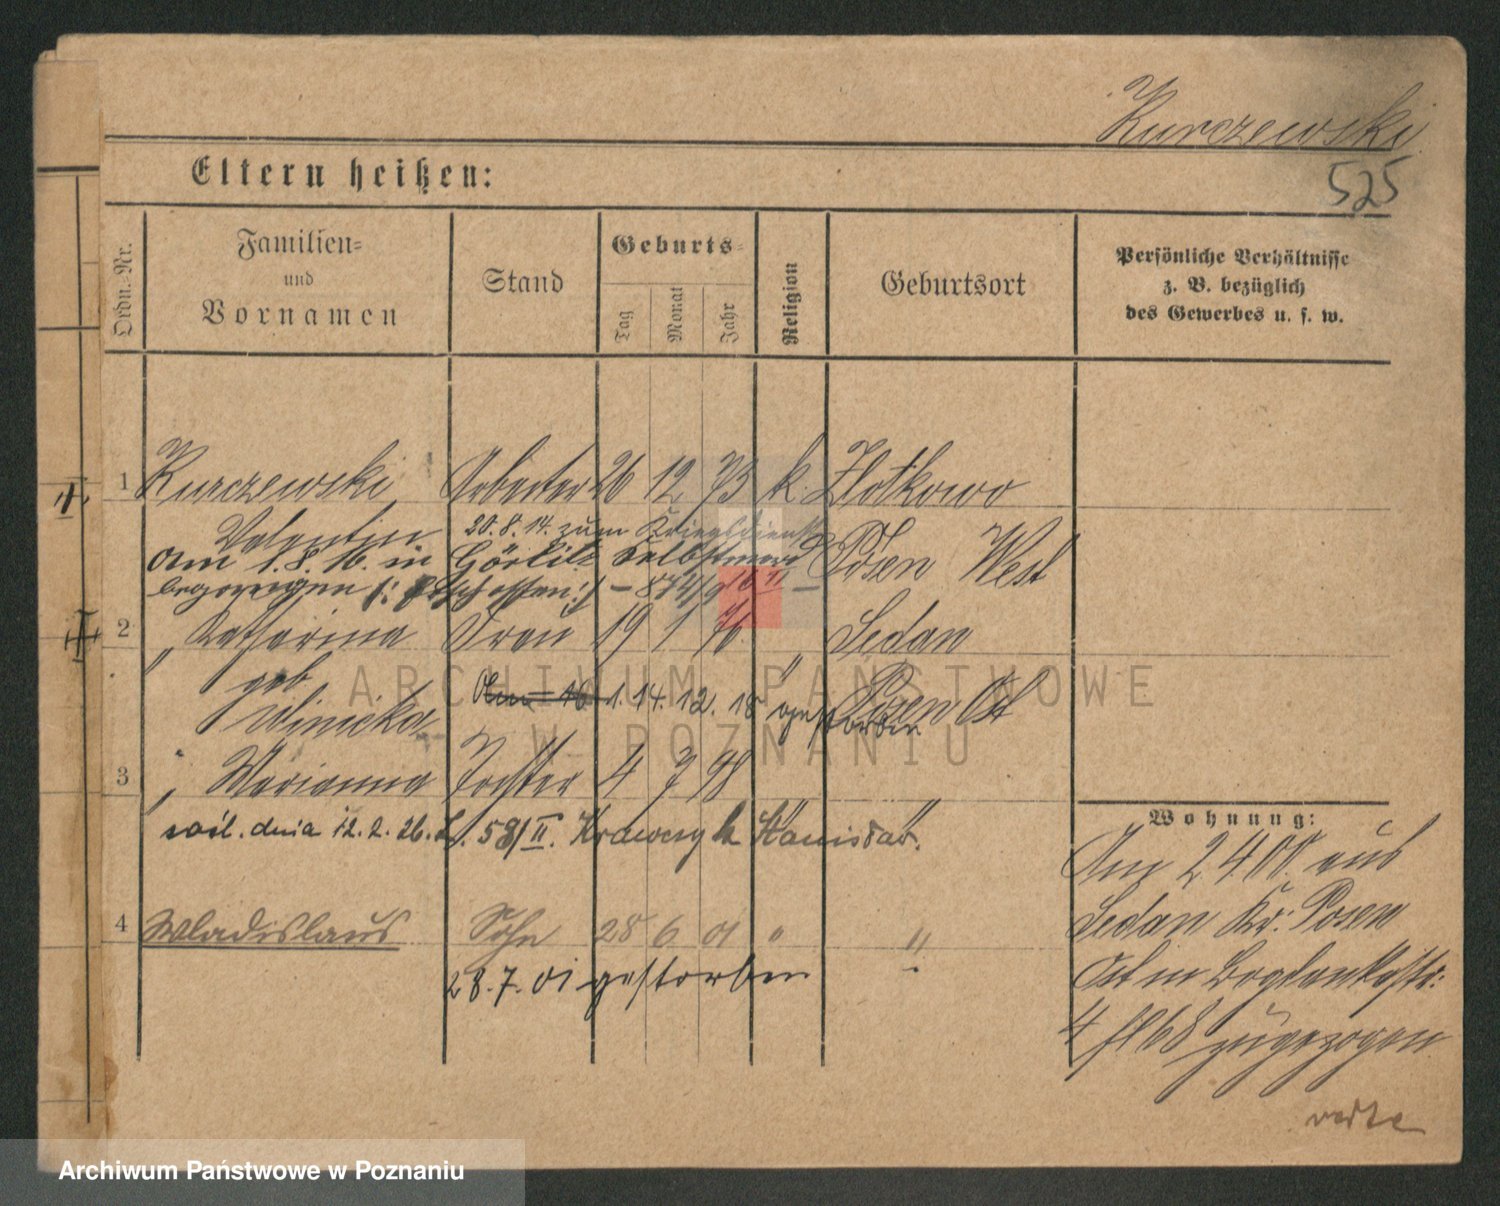 Kurczewski
525
Eltern heißen:
Ordn.-Nr.
Familien-
und
Vornamen
Stand
Geburts-
Tag
Monat
Jahr
Religion
Geburtsort
Persönliche Verhältnisse
z. B. bezüglich
des Gewerbes u. s. w.
1 Kurczewski Arbeiter 26 12 73 k. Zlotkowo
Valentin 20.8.14. zum Kriegsdienst
am 1.8.16. in Görlitz Selbstmord Posen West
begangen /: erschossen :/
2 " Katharina Frau 19 1 76 " Sedan
geb
14.12.18 gestorben Posen Ost
3 " Marianna Tochter 4 7 98 " "
dnia 12.2.26. 58/II. Krawczyk Stanisław.
Wohnung:
Am 2 4 00. aus
Sedan Kr. Posen
Ost in
4 zugezogen
4 Wladislaus Sohn 28 6 01 " "
28.7.01 gestorben
ARCHIWUM PAŃSTWOWE
W POZNANIU
Archiwum Państwowe w Poznaniu